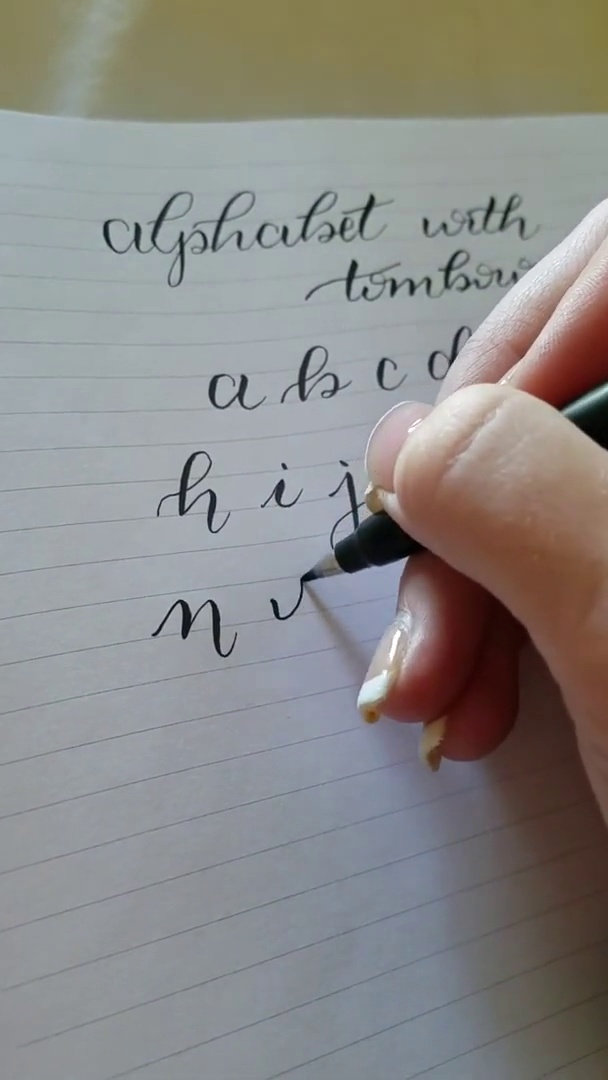 alphabet with
tombow
a b c d
h i j
n